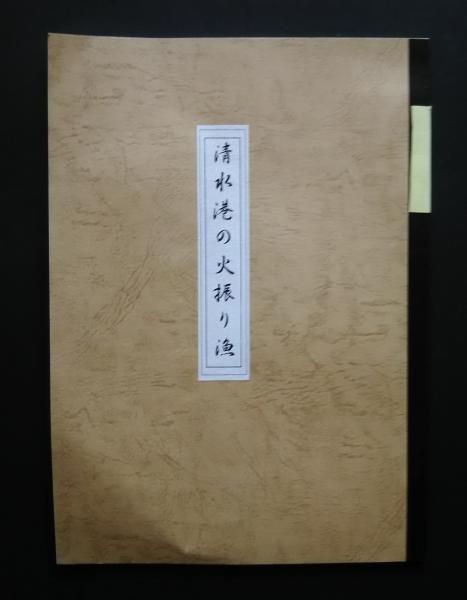 清水港の火振り漁